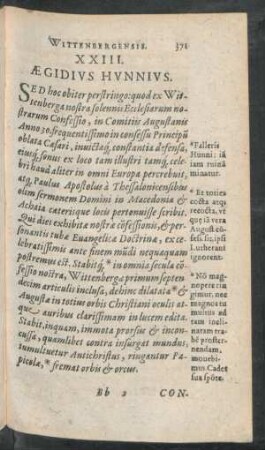 WITTENBERGENSIS. 371
XXIII.
ÆGIDIVS HVNNIVS.
SED hoc obiter perstringo: quod ex Wit-
tenberga nostra solennis Ecclesiarum no-
strarum Confessio, in Comitiis Augustanis
Anno 30. frequentissimo in consessu Principũ
oblata Cæsari, inuictoq́; constantia defensa,
eiusq́; sonus ex loco tam illustri tamq́; cele-
bri haud aliter in omni Europa percrebuit,
atq; Paulus Apostolus à Thessalonicensibus
olim sermonem Domini in Macedonia &
Achaia caterisque locis personuisse scribit.
Qui dies exhibita nostræ cõfessionis, & per-
sonantis tubæ Euangelica Doctrina, ex ce-
lebratissimis ante finem mũdi nequaquam
postremus est. Stabitq́; * in omnia secula cõ-
fessio nostra, Wittenberga primum septen-
decim articulis inclusa, dehinc dilatata * &
Augusta in totius orbis Christiani oculis at-
que auribus clarissimam in lucem edita.
Stabit, inquam, immota prorsus & incon-
cussa, quamlibet contra insurgat mundus,
tumultuetur Antichristus, ringantur Pa-
piculæ, * fremat orbis & orcus.
* Falleris
Hunni: iã
iam ruinã
minatur.
* Et toties
cocta atq;
recocta, vt
que is vera
August. cõ-
fess. sit, ipsi
Lutherani
ignorent.
* Nõ mag-
nopere rin
gimur, nec
magnis in
muris ad
tam inali-
naram tra-
bẽ proster-
nendam,
mouebi-
mus. Cadet
sua spõte.
Bb 2 CON-